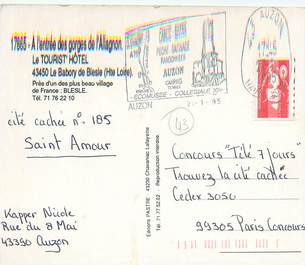 17865 - A l'entrée des gorges de l'Allagnon.
Le TOURIST' HÔTEL
43450 Le Babory de Blesle (Hte Loire).
Près d'un des plus beau village
de France : BLESLE.
Tél. 71 76 22 10
cité cachée n° 185
Saint Amour
Kapper Nicole
Rue du 8 Mai
43390 Auzon
Editions PASTRE 43230 Chavaniac Lafayette
Tél. 71 77 52 02 Reproduction interdite
RANDONNÉES
AUZON
CAMPING
TENNIS
ECOMUSEE - COLLEGIALE
AUZON
-1-95
AUZON
43
Concours "Télé 7 jours"
Trouvez la cité cachée
Cedex 3050
99305 Paris Concours